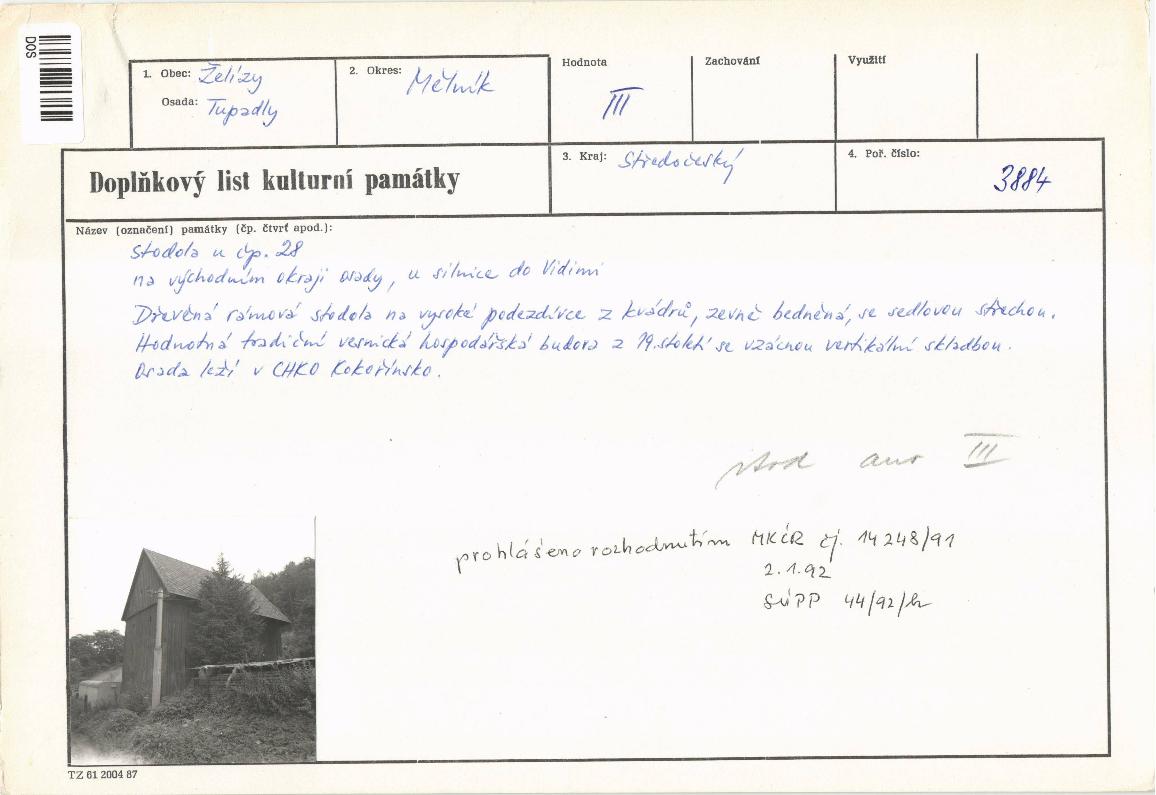 DOS
1. Obec: Želízy
Osada: Tupadly
2. Okres: Mělník
Hodnota
III
Zachování
Využití
Doplňkový list kulturní památky
3. Kraj: Středočeský
4. Poř. číslo:
3884
Název (označení) památky (čp. čtvrť apod.):
Stodola u čp. 28
na východním okraji osady, u silnice do Vidimi
Dřevěná rámová stodola na vysoké podezdívce z kvádrů, zevně bedněná, se sedlovou střechou.
Hodnotná tradiční vesnická hospodářská budova z 19. století se vzácnou vertikální skladbou.
Osada leží v CHKO Kokořínsko.
III
prohlášeno rozhodnutím MKČR čj. 14 248/91
2.1.92
SÚPP 44/92/
TZ 61 2004 87